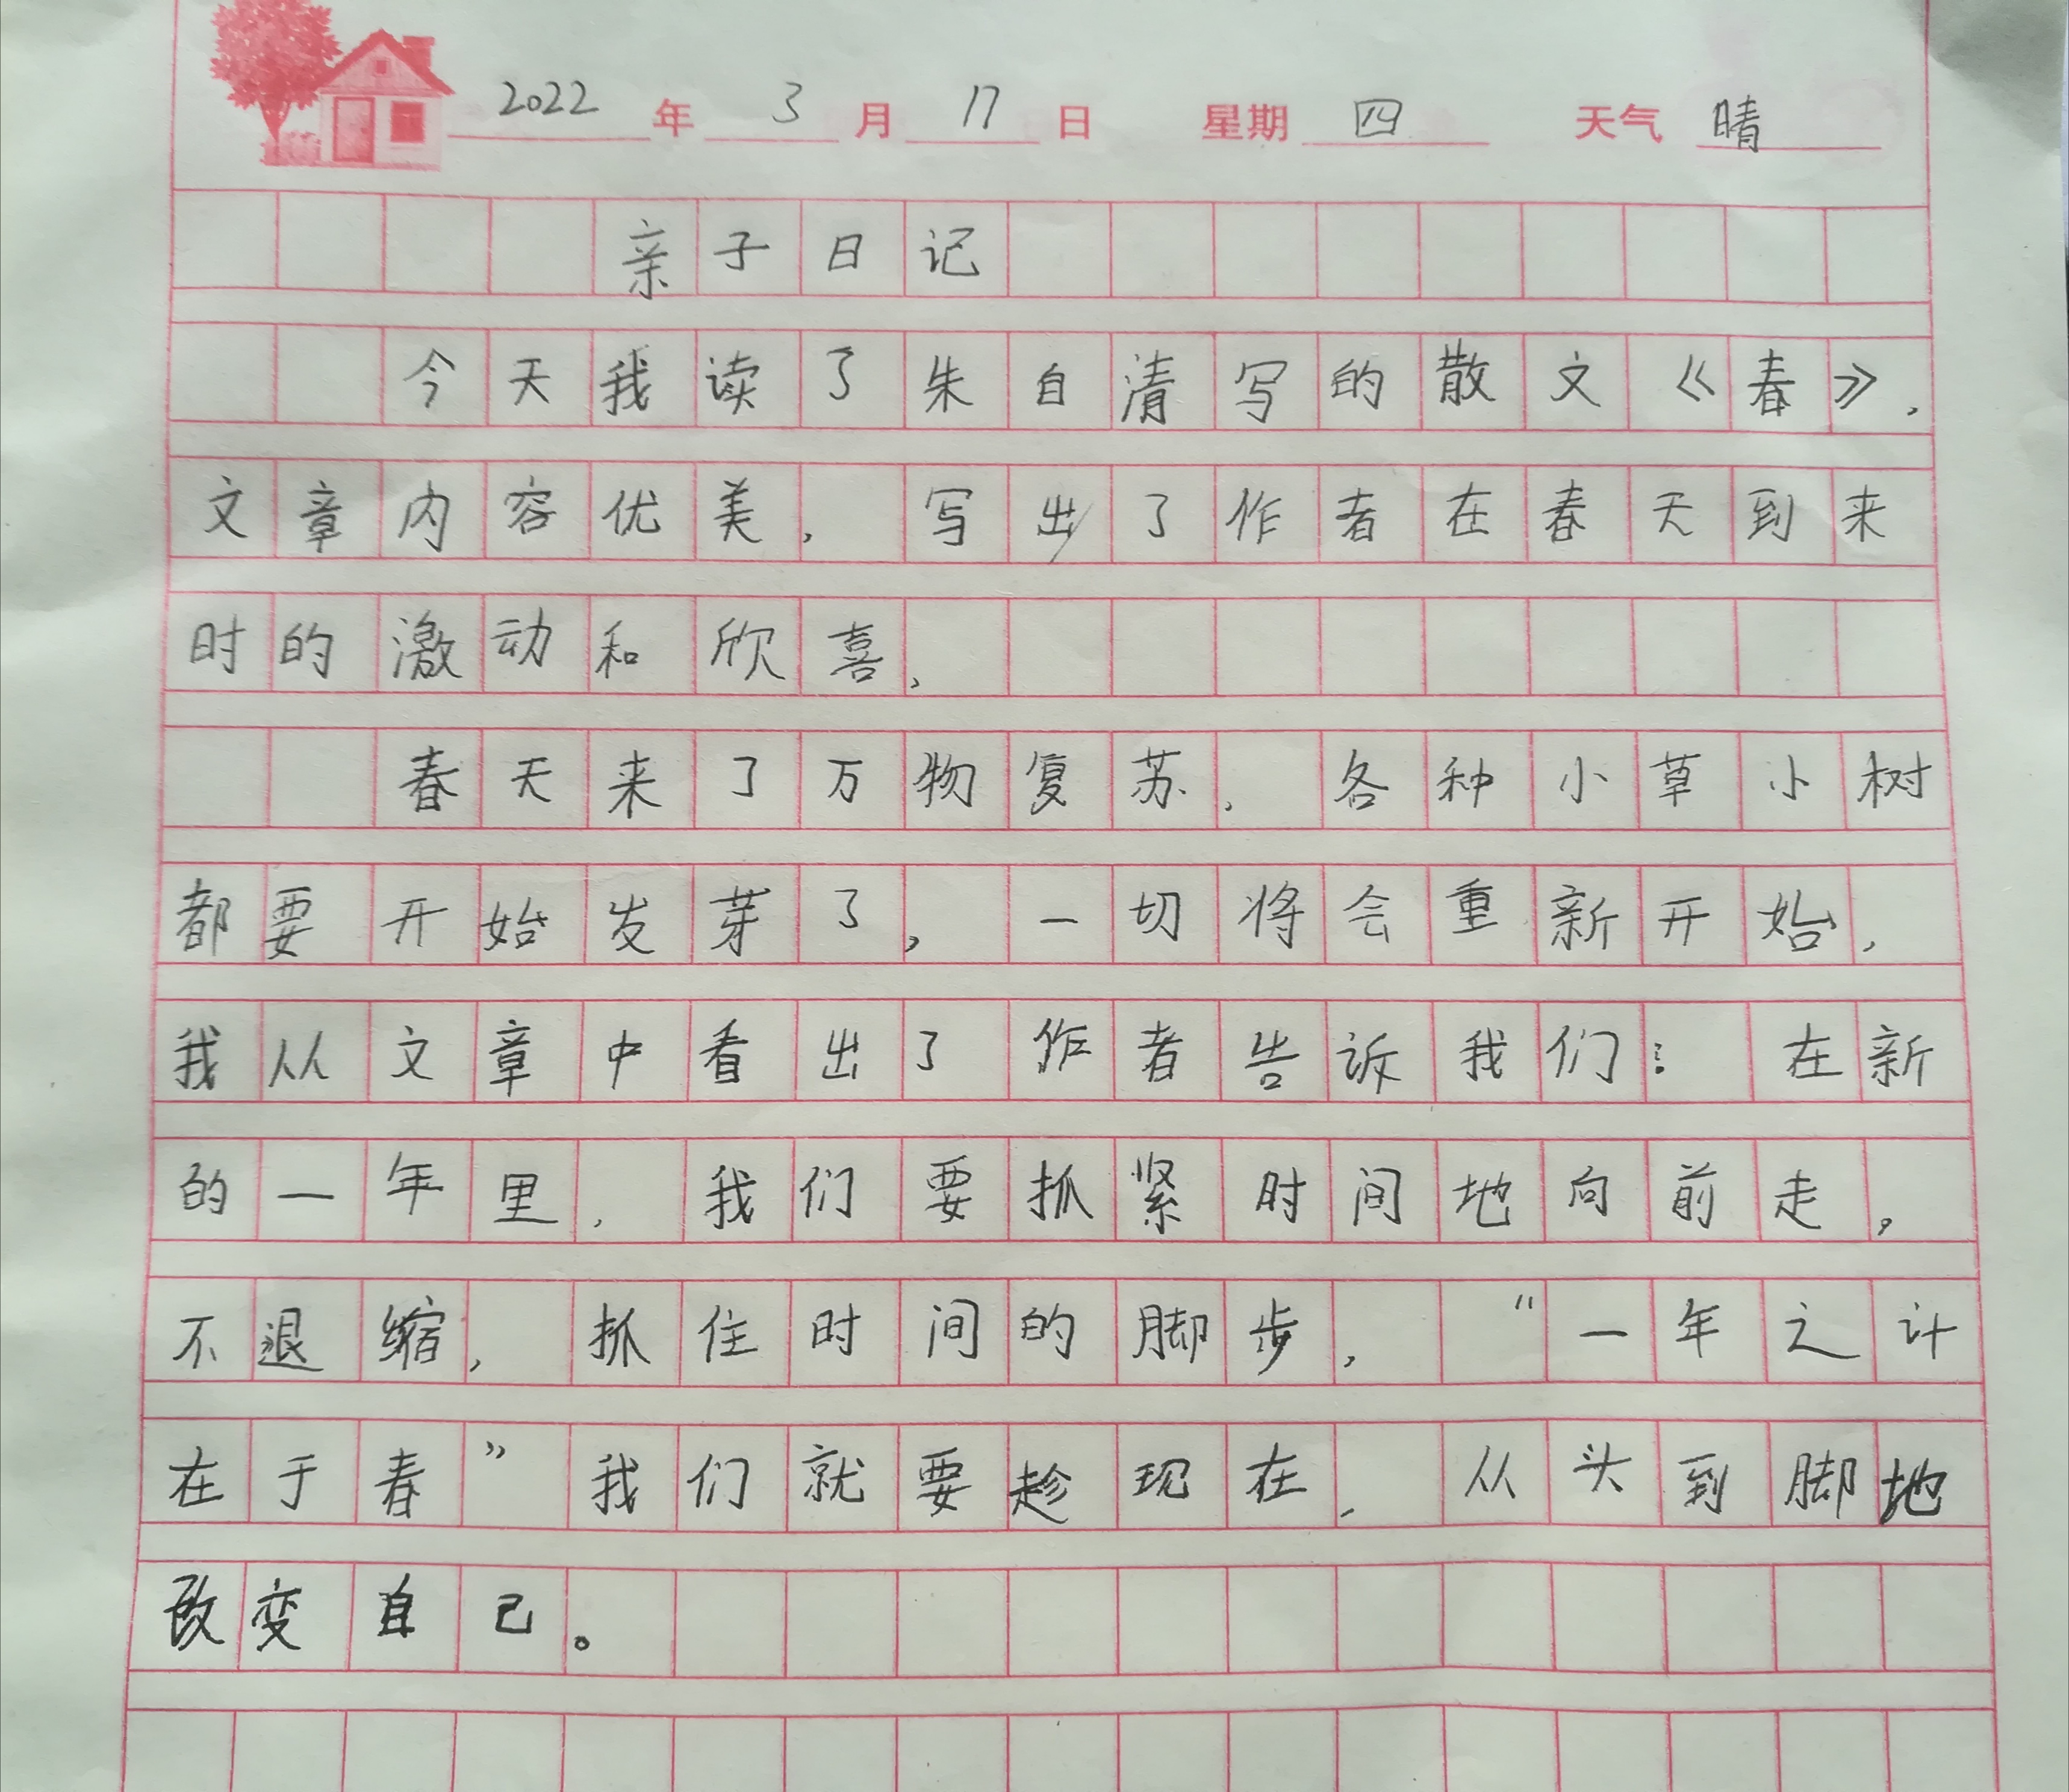 2022年3月17日 星期四 天气晴
亲子日记
今天我读了朱自清写的散文《春》，
文章内容优美，写出了作者在春天到来
时的激动和欣喜，
春天来了万物复苏，各种小草小树
都要开始发芽了，一切将会重新开始，
我从文章中看出了作者告诉我们：在新
的一年里，我们要抓紧时间地向前走，
不退缩，抓住时间的脚步，“一年之计
在于春”我们就要趁现在，从头到脚地
改变自己。